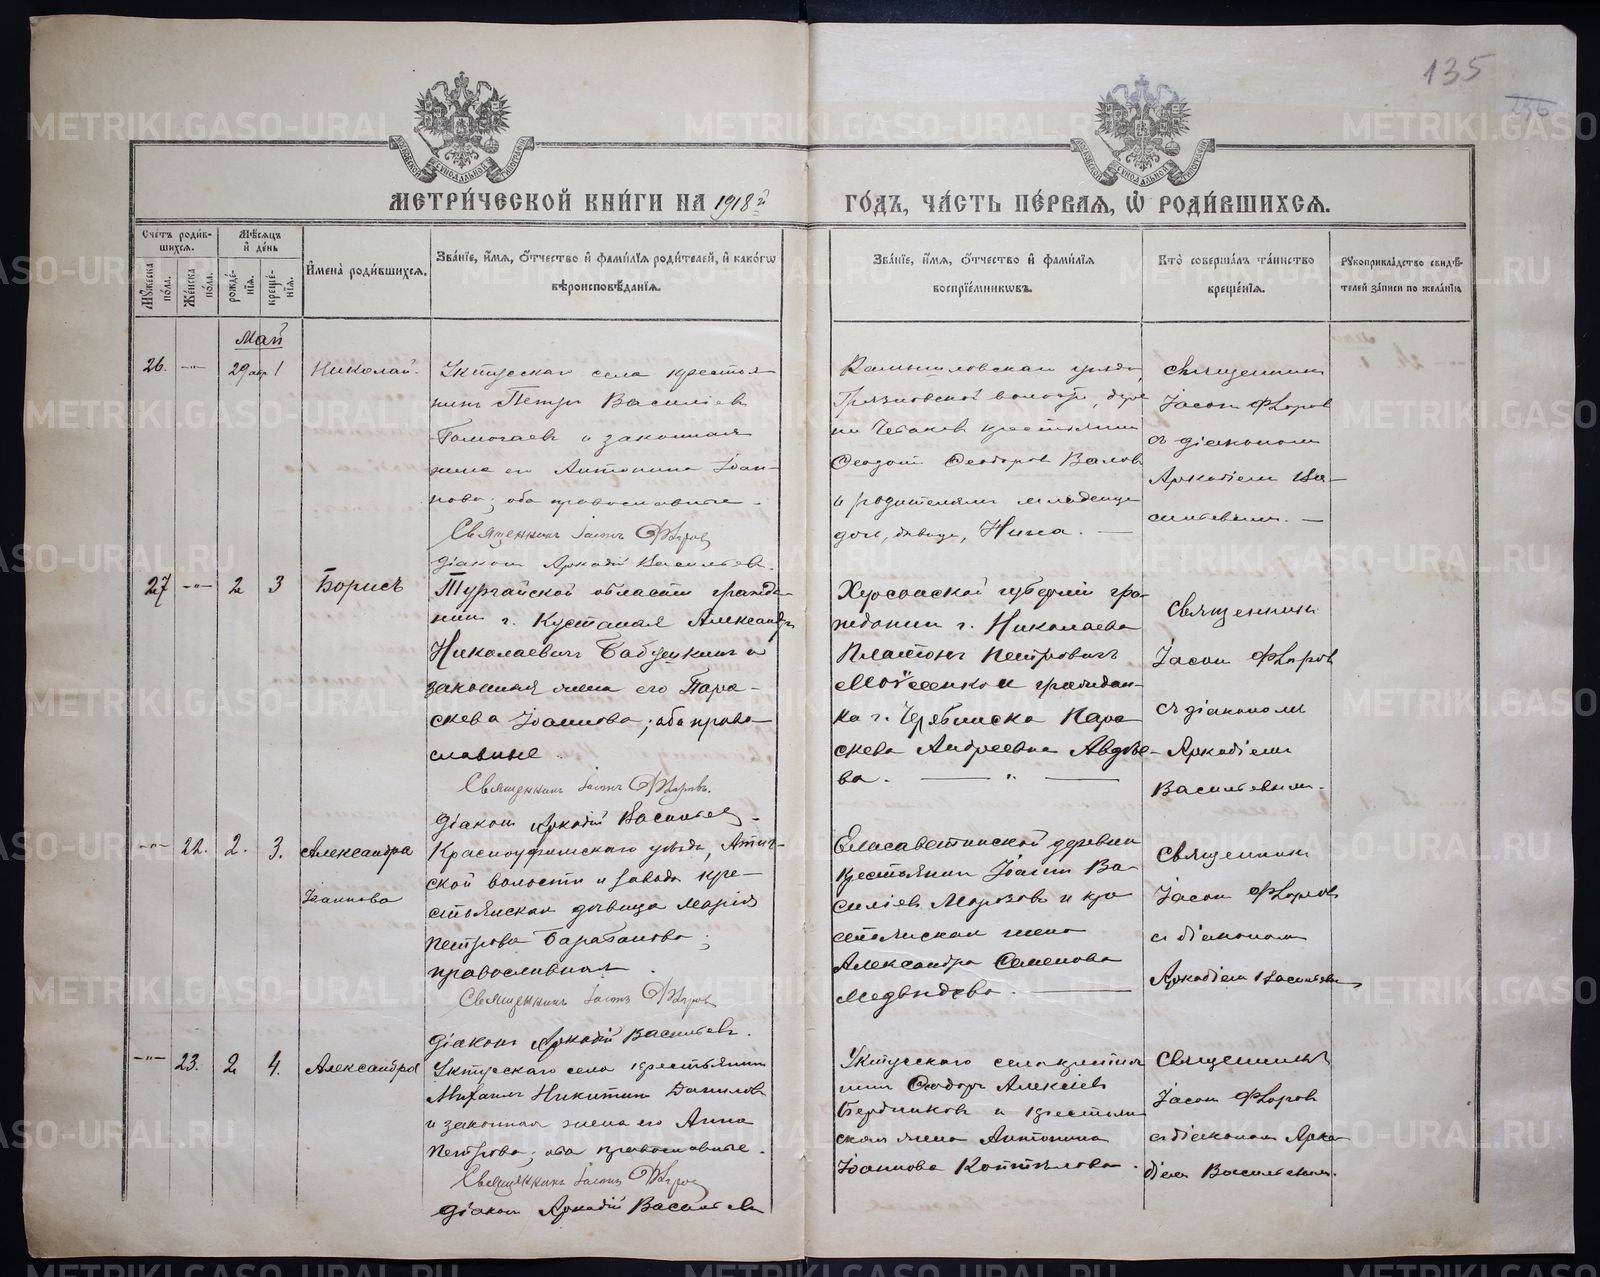 135
МЕТРИ́ЧЕСКОЙ КНИ́ГИ НА 1918й
ГО́ДЪ, ЧА́СТЬ ПЕ́РВАЯ, Ѡ҆ РОДИ́ВШИХСЯ.
Сче́тъ роди́в-
шихся.
Мꙋ́жеска по́ла.
Же́нска по́ла.
Мѣ́сяцъ
и҆ де́нь
рожде́-
нїя.
креще́-
нїя.
И҆мена̀ роди́вшихся.
Зва́нїе, и҆́мя, ѻ҆́тчество и҆ фами́лїя роди́телей, и҆ како́гѡ
вѣроисповѣ́данїя.
Зва́нїе, и҆́мя, ѻ҆́тчество и҆ фами́лїя
воспрїе́мникѡвъ.
Кто̀ соверша́лъ та́инство
креще́нїя.
Рꙋкоприкла́дство свидѣ́-
телей за́писи по жела́нїю
Май
26.
29 апр.
1
Николай.
Уктусскаго села крестья-
нинъ Петръ Василіевъ
и законная
жена его Антонина Іоан-
нова; оба православные.
Священникъ Іасонъ Флоровъ
діаконъ Аркадій Васильевъ.
Камышловскаго уѣзда,
Грязновской волости, дерев
ни крестьянинъ
Ѳеодотъ Ѳеодоровъ Валовъ
и родителями младенца
дочь, дѣвица, Нина.
Священникъ
Іасонъ Флоровъ
съ діакономъ
Аркадіемъ Ва-
сильевымъ.
27
2
3
Борисъ
Тургайской области гражда-
нинъ г. Кустаная Александръ
Николаевичъ Бабушкинъ и
законная жена его Пара-
скева Іоаннова; оба право-
славные.
Священникъ Іасонъ Флоровъ.
діаконъ Аркадій Васильевъ.
Херсонской губерніи гра-
жданинъ г. Николаева
Платонъ Петровичъ
Мойсенко и граждан-
ка г. Челябинска Пара
скева Андреевна Авдѣе-
ва.
Священникъ
Іасонъ Флоровъ
съ діакономъ
Аркадіемъ
Васильевымъ.
22.
2.
3.
Александра
Іоаннова
Красноуфимскаго уѣзда, Атиг-
ской волости и завода кре-
стьянская дѣвица Марія
Петрова Барабанова;
православная.
Священникъ Іасонъ Флоровъ
діаконъ Аркадій Васильевъ.
Елисаветинской деревни
крестьянинъ Іоаннъ Ва-
силіевъ Морозовъ и кре
стьянская жена
Александра Семенова
Медвѣдева.
Священникъ
Іасонъ Флоровъ
съ діакономъ
Аркадіемъ Васильевымъ
23.
2
4.
Александра
Уктусскаго села крестьянинъ
Михаилъ Никитинъ Даниловъ
и законная жена его Анна
Петрова; оба православные.
Священникъ Іасонъ Флоровъ
діаконъ Аркадій Васильевъ
Уктусскаго села крестья
нинъ Ѳеодоръ Алексіевъ
Бердниковъ и крестьян
ская жена Антонина
Іоаннова Коптѣлова.
Священникъ
Іасонъ Флоровъ
съ діакономъ Арка
діемъ Васильевымъ.